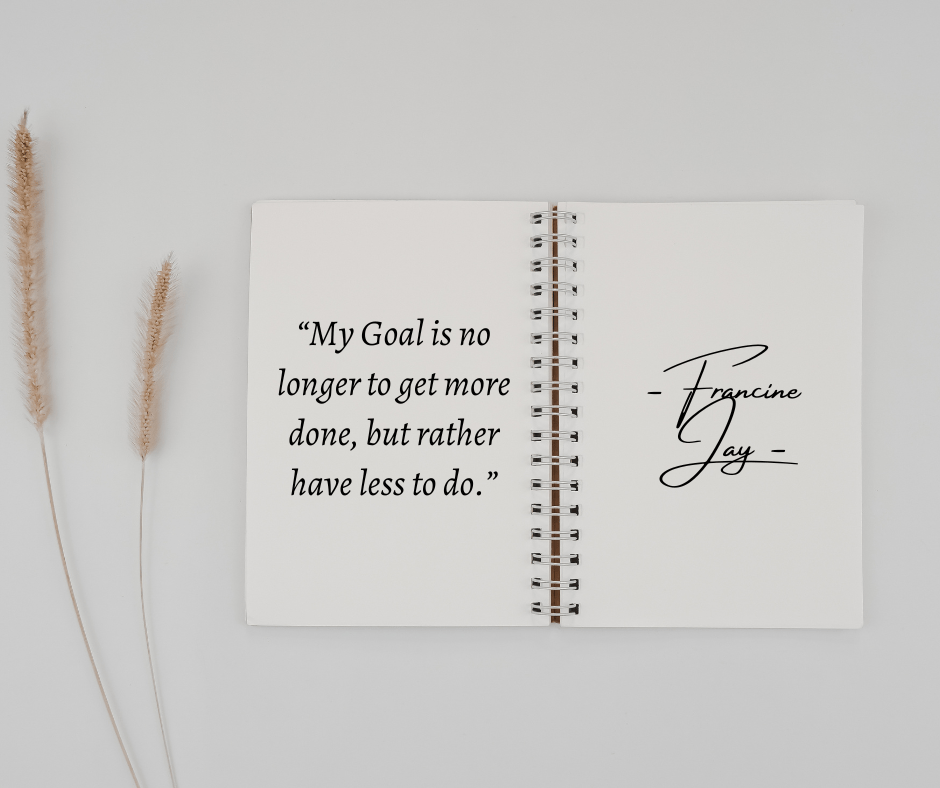 “My Goal is no
longer to get more
done, but rather
have less to do.”
- Francine
Jay -